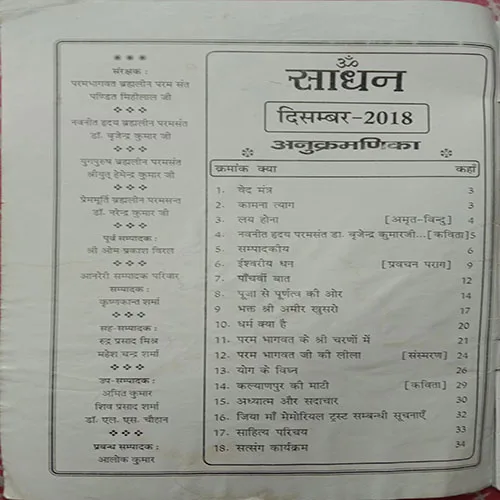 संरक्षक :
परमभागवत ब्रह्मलीन परम संत
पण्डित मिहीलाल जी
नवनीत हृदय ब्रह्मलीन परमसंत
डॉ. बृजेन्द्र कुमार जी
युगपुरुष ब्रह्मलीन परमसंत
श्रीयुत् हेमेन्द्र कुमार जी
प्रेममूर्ति ब्रह्मलीन परमसन्त
डॉ. नरेन्द्र कुमार जी
पूर्व सम्पादक :
श्री ओम प्रकाश विरल
आनरेरी सम्पादक परिवार
सम्पादक :
कृष्णकान्त शर्मा
सह-सम्पादक :
रुद्र प्रसाद मिश्र
महेश चन्द्र शर्मा
उप-सम्पादक :
अमित कुमार
शिव प्रसाद शर्मा
डॉ. एल. एस. चौहान
प्रबन्ध सम्पादक :
आलोक कुमार
ॐ
साधन
दिसम्बर-2018
अनुक्रमणिका
क्रमांक क्या कहाँ
1. वेद मंत्र 3
2. कामना त्याग 3
3. लय होना [अमृत-विन्दु] 4
4. नवनीत हृदय परमसंत डा. बृजेन्द्र कुमारजी...[कविता]5
5. सम्पादकीय 6
6. ईश्वरीय धन [प्रवचन पराग] 9
7. पाँचवीं बात 12
8. पूजा से पूर्णत्व की ओर 14
9 भक्त श्री अमीर खुसरो 17
10. धर्म क्या है 20
11. परम भागवत के श्री चरणों में 21
12. परम भागवत जी की लीला [संस्मरण] 24
13. योग के विघ्न 26
14. कल्याणपुर की माटी [कविता] 29
15. अध्यात्म और सदाचार 30
16. जिया माँ मैमोरियल ट्रस्ट सम्बन्धी सूचनाएँ 32
17. साहित्य परिचय 33
18. सत्संग कार्यक्रम 34